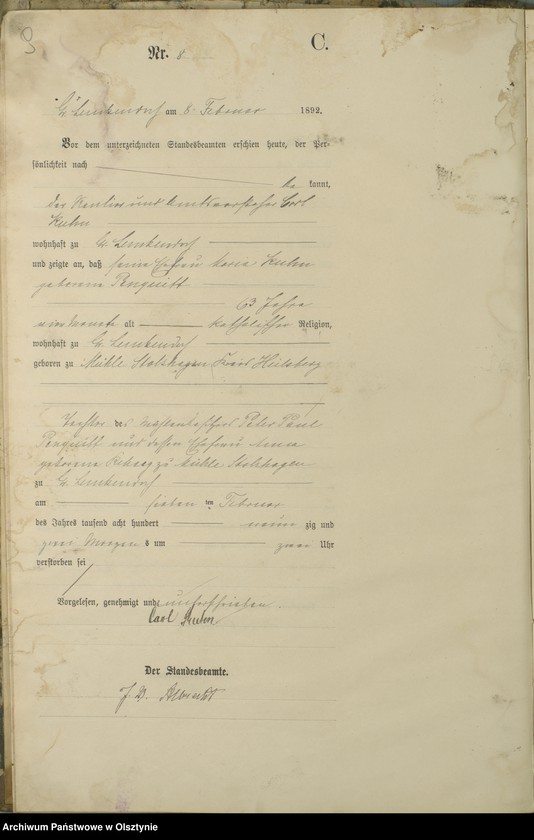 8
C.
Nr. 8
Gr. Lemkendorf am 8. Februar 1892.
Vor dem unterzeichneten Standesbeamten erschien heute, der Per-
sönlichkeit nach
be kannt,
der Rentier und Amtsvorsteher Carl
Kuhn
wohnhaft zu Gr. Lemkendorf
und zeigte an, daß seine Ehefrau Maria Kuhn
geborene Penquitt
63 Jahre
Monate alt katholischer Religion,
wohnhaft zu Gr. Lemkendorf
geboren zu Mühle Stolzhagen Kreis Heilsberg
Tochter des Peter Paul
Penquitt und dessen Ehefrau Anna
geborene zu Mühle Stolzhagen
zu Gr. Lemkendorf
am sieben ten Februar
des Jahres tausend acht hundert neun zig und
zwei Morgen s um zwei Uhr
verstorben sei
Vorgelesen, genehmigt und unterschrieben.
Carl Kuhn
Der Standesbeamte.
J. D. Albrecht
Archiwum Państwowe w Olsztynie